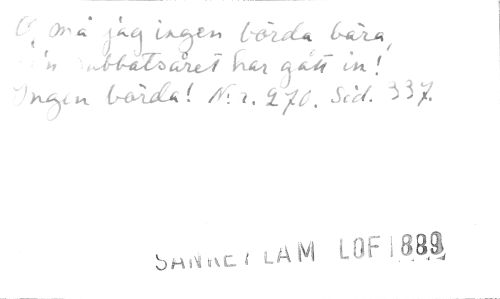 O, må jag ingen börda bära,
sabbatsåret har gått in!
Ingen börda! N:r. 270. Sid. 337.
SANKEY LAM LOF 1889